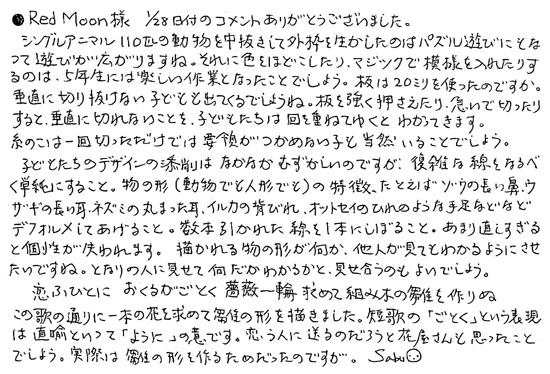 ●Red Moon様 1/28日付のコメントありがとうございました。
シングルアニマル110匹の動物を中抜きして外枠を生かしたのはパズル遊びにもな
って遊びが広がりますね。それに色をほどこしたり、マジックで模様を入れたりす
るのは、5年生には楽しい作業となったことでしょう。板は20ミリを使ったのですか。
垂直に切り抜けない子どもも出てくるでしょうね。板を強く押さえたり、急いで切ったり
すると、垂直に切れないことを、子どもたちは回を重ねてゆくとわかってきます。
糸のこは一回切っただけでは要領がつかめない子も当然いることでしょう。
子どもたちのデザインの添削はなかなかむずかしいのですが、複雑な線をなるべ
く単純にすること。物の形(動物でも人形でも)の特徴、たとえばゾウの長い鼻、ウ
サギの長い耳、ネズミの丸まった耳、イルカの背びれ、オットセイのひれのような手足などなど
デフォルメしてあげること。数本引かれた線を1本にしぼること。あまり直しすぎる
と個性が失われます。描かれる物の形が何か、他人が見てもわかるようにさせ
たいですね。となりの人に見せて何だかわかるかと、見せ合うのもよいでしょう。
恋ふひとに おくるがごとく 薔薇一輪 求めて組み木の雛を作りぬ
この歌の通りに一本の花を求めて雛の形を描きました。短歌の「ごとく」という表現
は直喩といって「ように」の意です。恋う人に送るのだろうと花屋さんも思ったこと
でしょう。実際は雛の形を作るためだったのですが。Saku